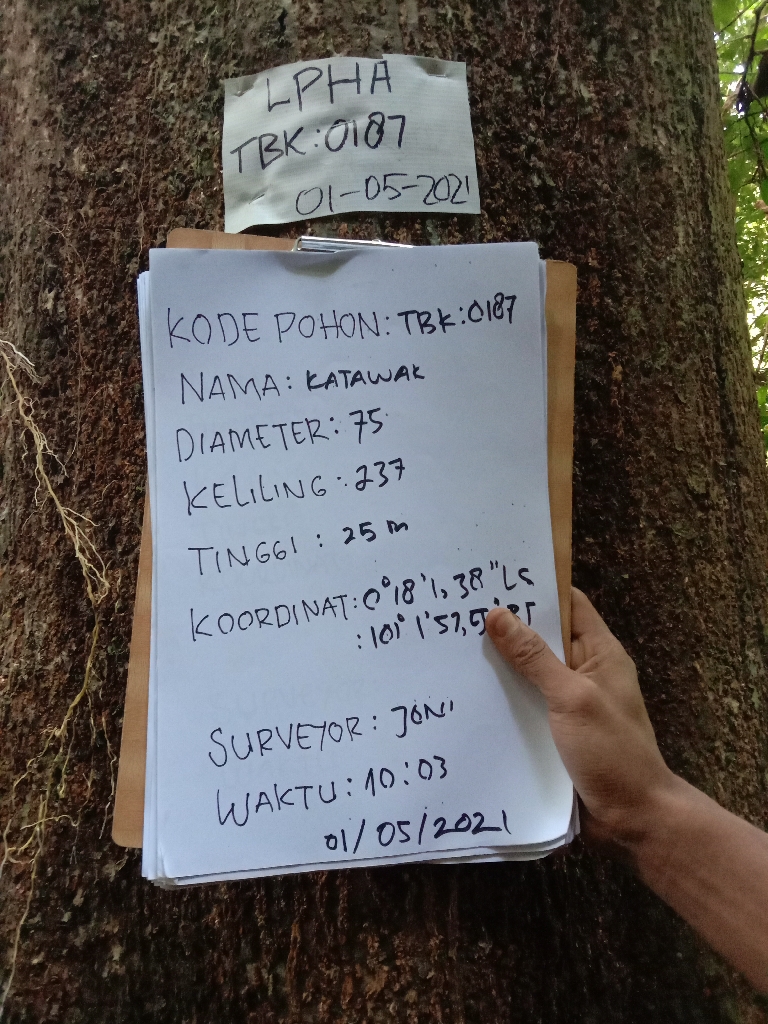 LPHA
TBK:0187
01-05-2021
KODE POHON: TBK:0187
NAMA: KATAWAK
DIAMETER: 75
KELILING: 237
TINGGI: 25 m
KOORDINAT: 0°18'1,38"LS
: 101°1'57,5
SURVEYOR: JONI
WAKTU: 10:03
01/05/2021